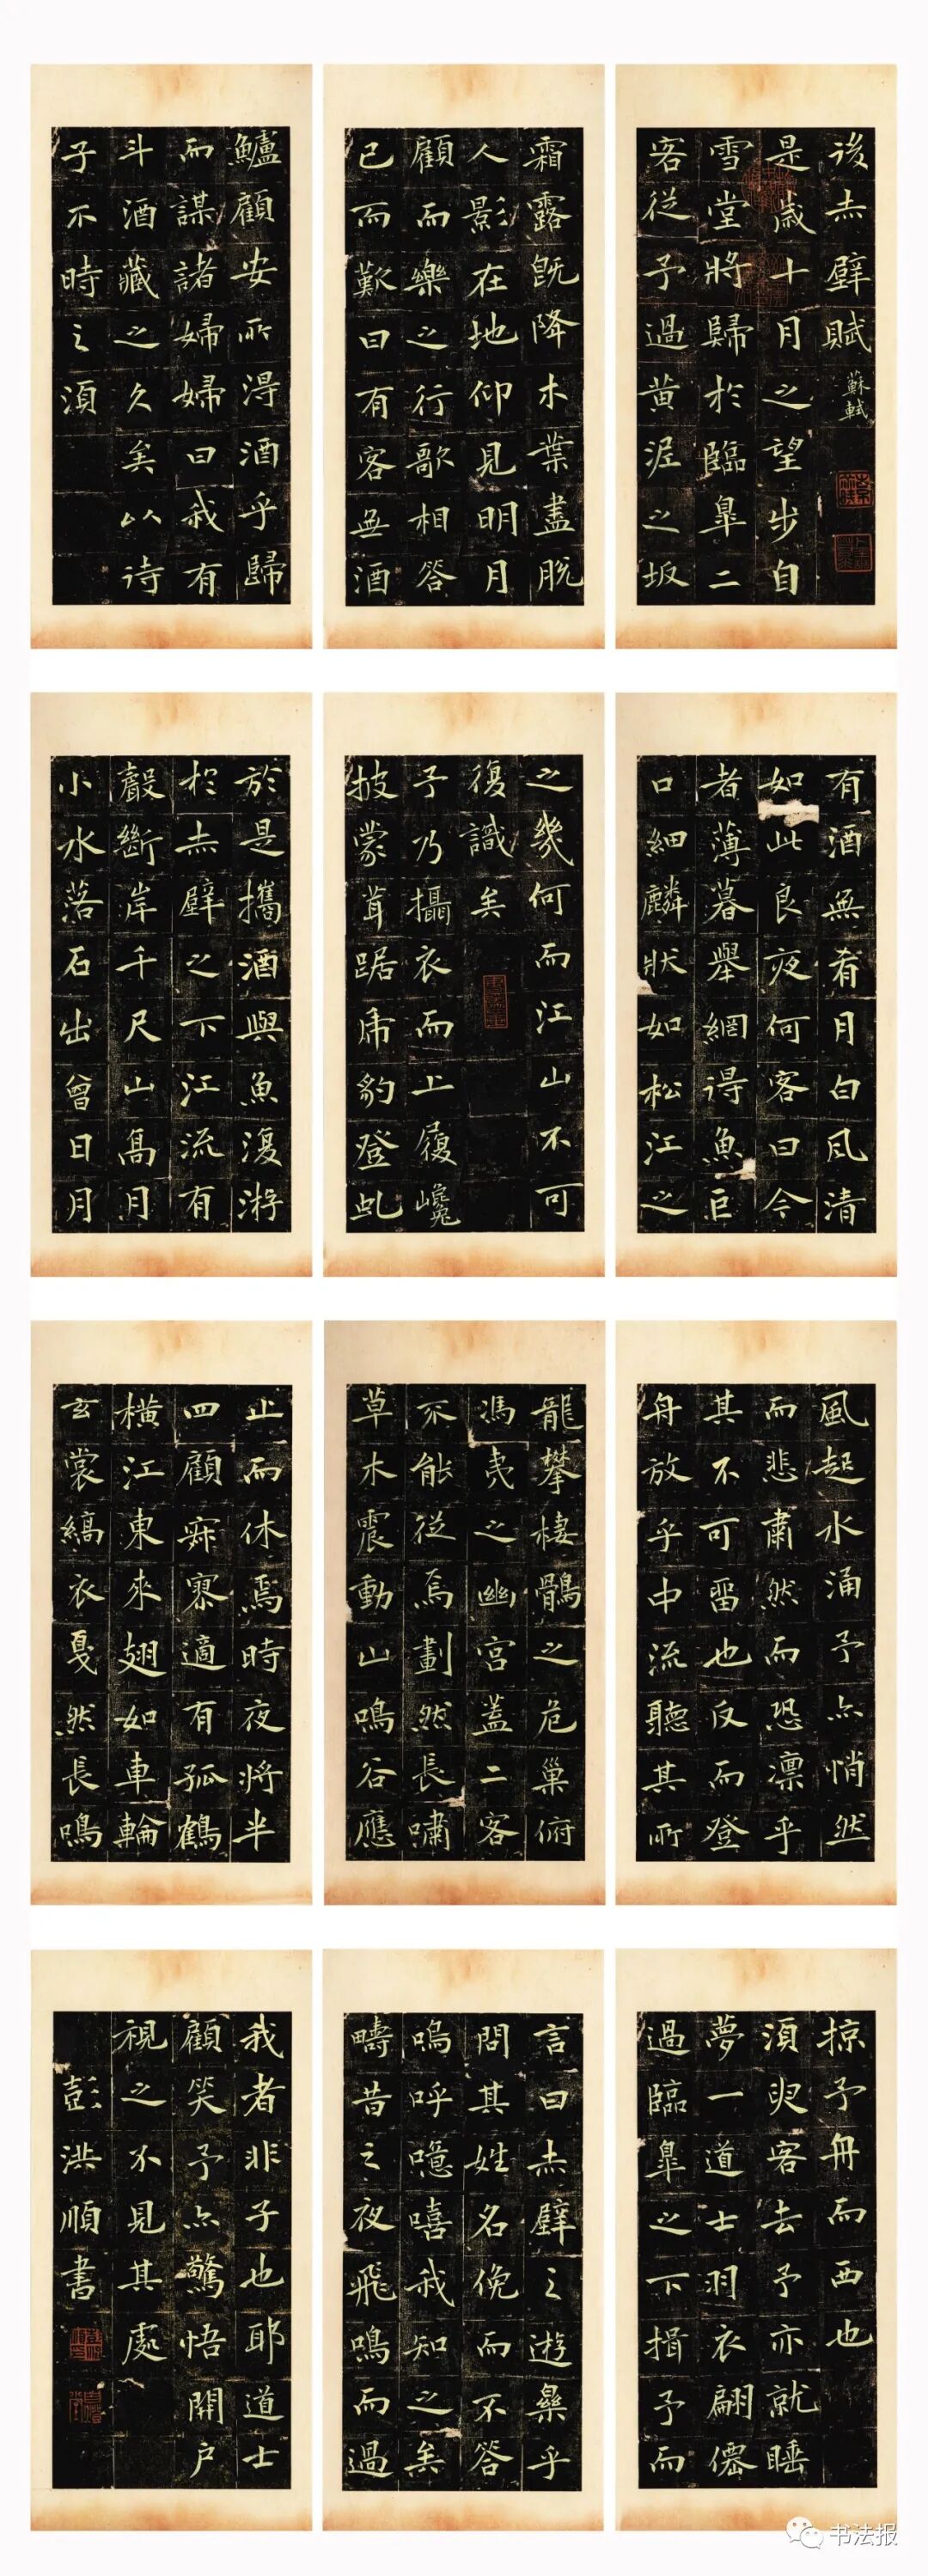 後赤壁賦 蘇軾
是歲十月之望步自
雪堂將歸於臨皋二
客從予過黃泥之坂
霜露既降木葉盡脫
人影在地仰見明月
顧而樂之行歌相答
已而歎曰有客無酒
鱸顧安所得酒乎歸
而謀諸婦婦曰我有
斗酒藏之久矣以待
子不時之須
有酒無肴月白風清
如此良夜何客曰今
者薄暮舉網得魚巨
口細鱗狀如松江之
之幾何而江山不可
復識矣
予乃攝衣而上履巉
披蒙茸踞虎豹登虬
於是攜酒與魚復游
於赤壁之下江流有
聲斷岸千尺山高月
小水落石出曾日月
風起水涌予亦悄然
而悲肅然而恐凛乎
其不可留也反而登
舟放乎中流聽其所
龍攀棲鶻之危巢俯
馮夷之幽宮蓋二客
不能從焉劃然長嘯
草木震動山鳴谷應
止而休焉時夜將半
四顧寂寥適有孤鶴
橫江東來翅如車輪
玄裳縞衣戛然長鳴
掠予舟而西也
須臾客去予亦就睡
夢一道士羽衣翩僊
過臨皋之下揖予而
言曰赤壁之遊樂乎
問其姓名俛而不答
嗚呼噫嘻我知之矣
疇昔之夜飛鳴而過
我者非子也耶道士
顧笑予亦驚悟開戶
視之不見其處
彭洪順書
书法报